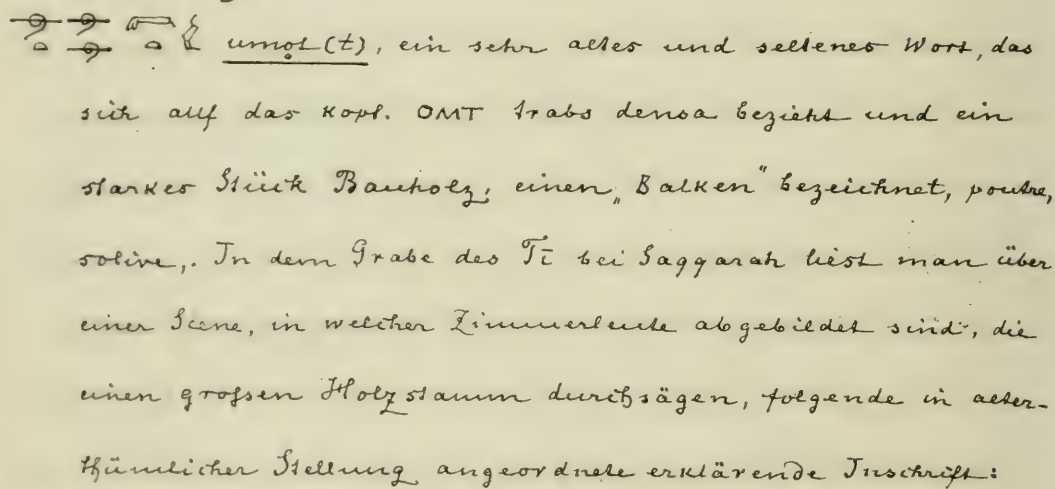 umot(t), ein sehr altes und seltenes Wort, das
sich auf das Kopt. ⲞⲘⲦ trabs densa bezieht und ein
starkes Stück Bauholz, einen „Balken“ bezeichnet, poutre,
solive,. In dem Grabe des Tī bei Saqqarah liest man über
einer Scene, in welcher Zimmerleute abgebildet sind, die
einen grofsen Holzstamm durchsägen, folgende in alter-
thümlicher Stellung angeordnete erklärende Inschrift: